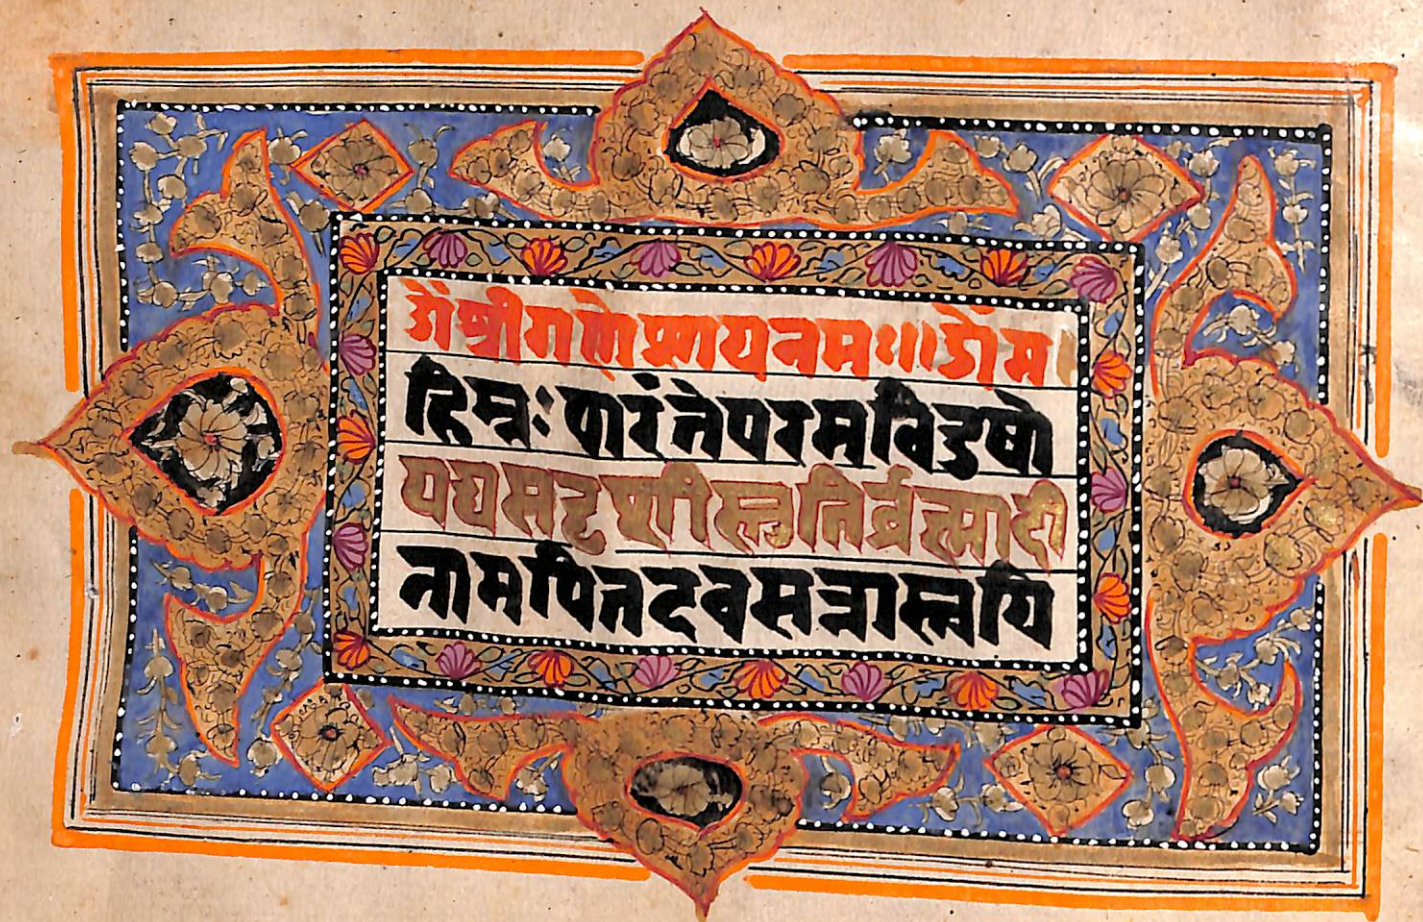 ओंश्रीगणेशायनमः॥ओंम
हिम्नःपारंतेपरमविदुषो
यद्यसदृशीस्तुतिर्ब्रह्मादी
नामपितदवसन्नास्त्वयि